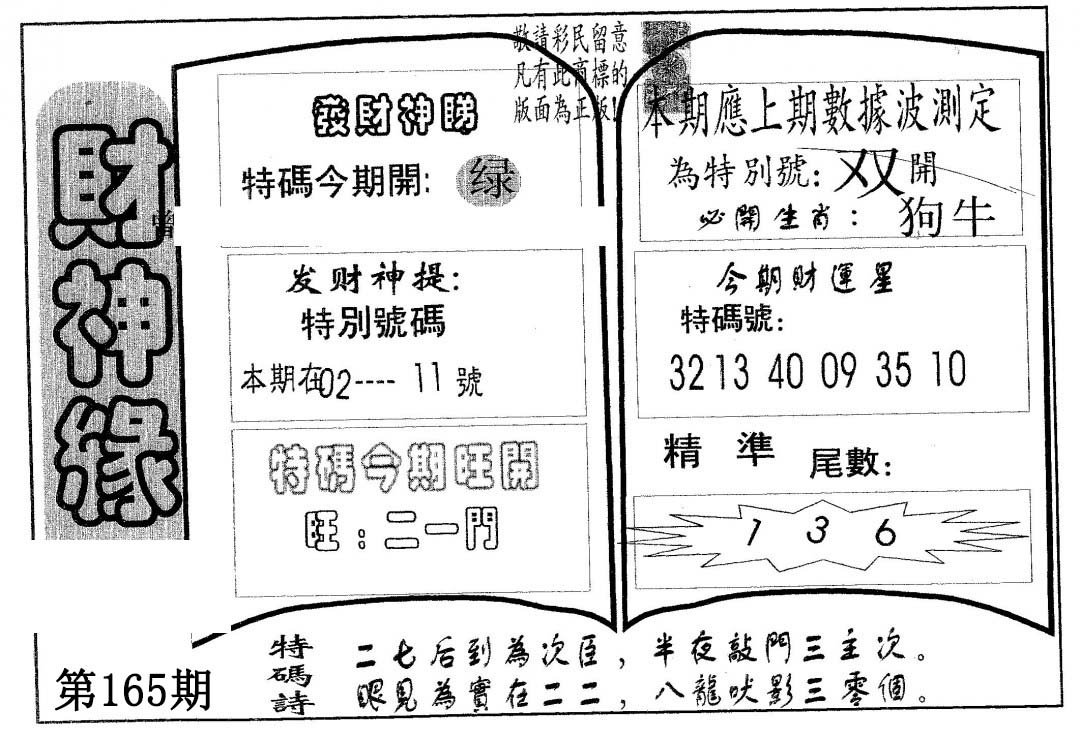 財神緣
曾
敬請彩民留意
凡有此商標的
版面為正版!
發財神睇
特碼今期開: 绿
发财神提:
特別號碼
本期在02---- 11 號
特碼今期旺開
旺:二一門
本期應上期數據波測定
為特別號: 双 開
必開生肖: 狗牛
今期財運星
特碼號:
32 13 40 09 35 10
精 準 尾數:
1 3 6
第165期
特碼詩
二七后到為次臣,半夜敲門三主次。
眼見為實在二二,八龍吠影三零個。